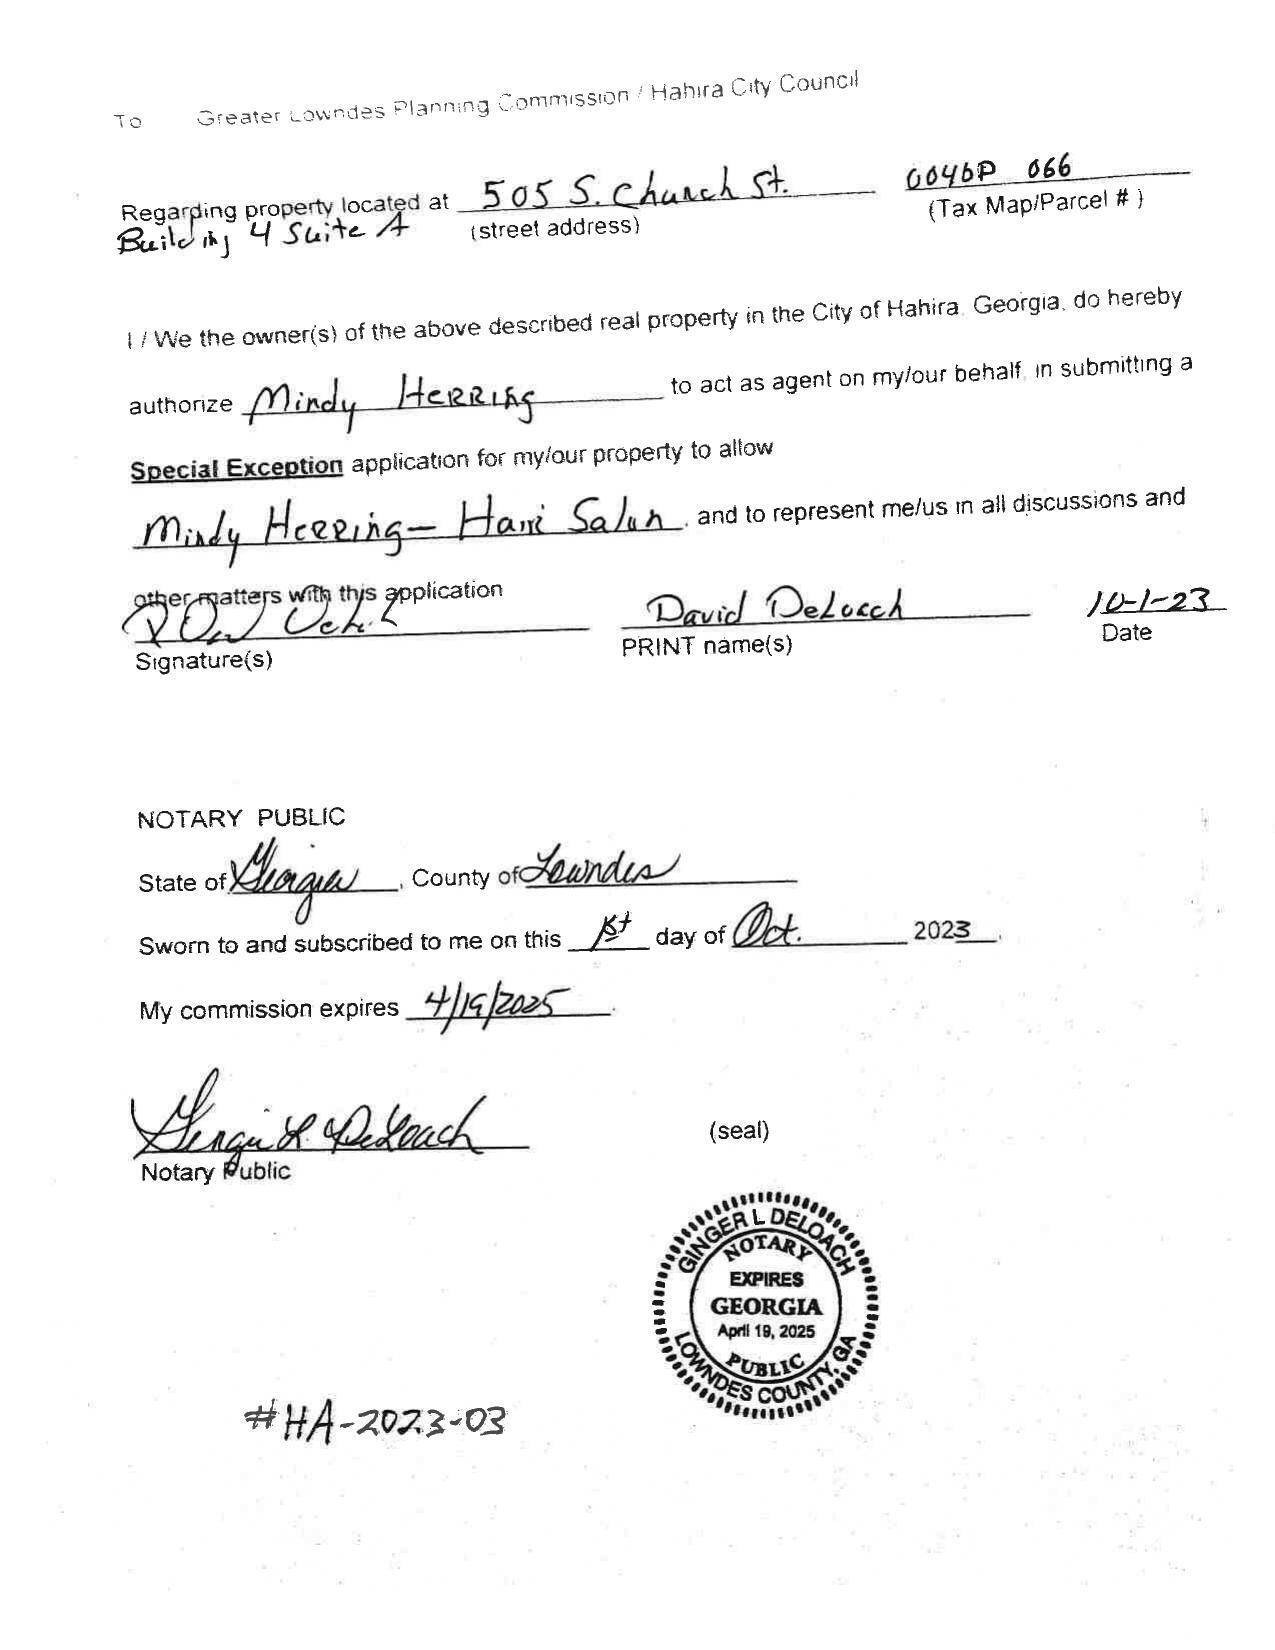 To Greater Lowndes Planning Commission / Hahira City Council
Regarding property located at 505 S. Church St. 0046P 066
Building 4 Suite A (street address) (Tax Map/Parcel # )
I / We the owner(s) of the above described real property in the City of Hahira, Georgia, do hereby
authorize Mindy Herring to act as agent on my/our behalf, in submitting a
Special Exception application for my/our property to allow
Mindy Herring - Hair Salon, and to represent me/us in all discussions and
other matters with this application
David DeLoach 10-1-23
Signature(s) PRINT name(s) Date
NOTARY PUBLIC
State of Georgia, County of Lowndes
Sworn to and subscribed to me on this 1st day of Oct. 2023.
My commission expires 4/19/2025.
Ginger L. DeLoach (seal)
Notary Public
GINGER L DELOACH
NOTARY
EXPIRES
GEORGIA
April 19, 2025
PUBLIC
LOWNDES COUNTY, GA
#HA-2023-03